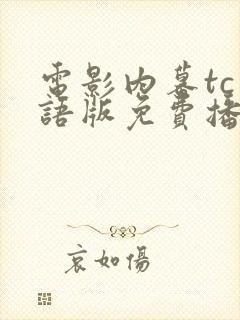 電影內幕tc
語版免費播
哀如傷